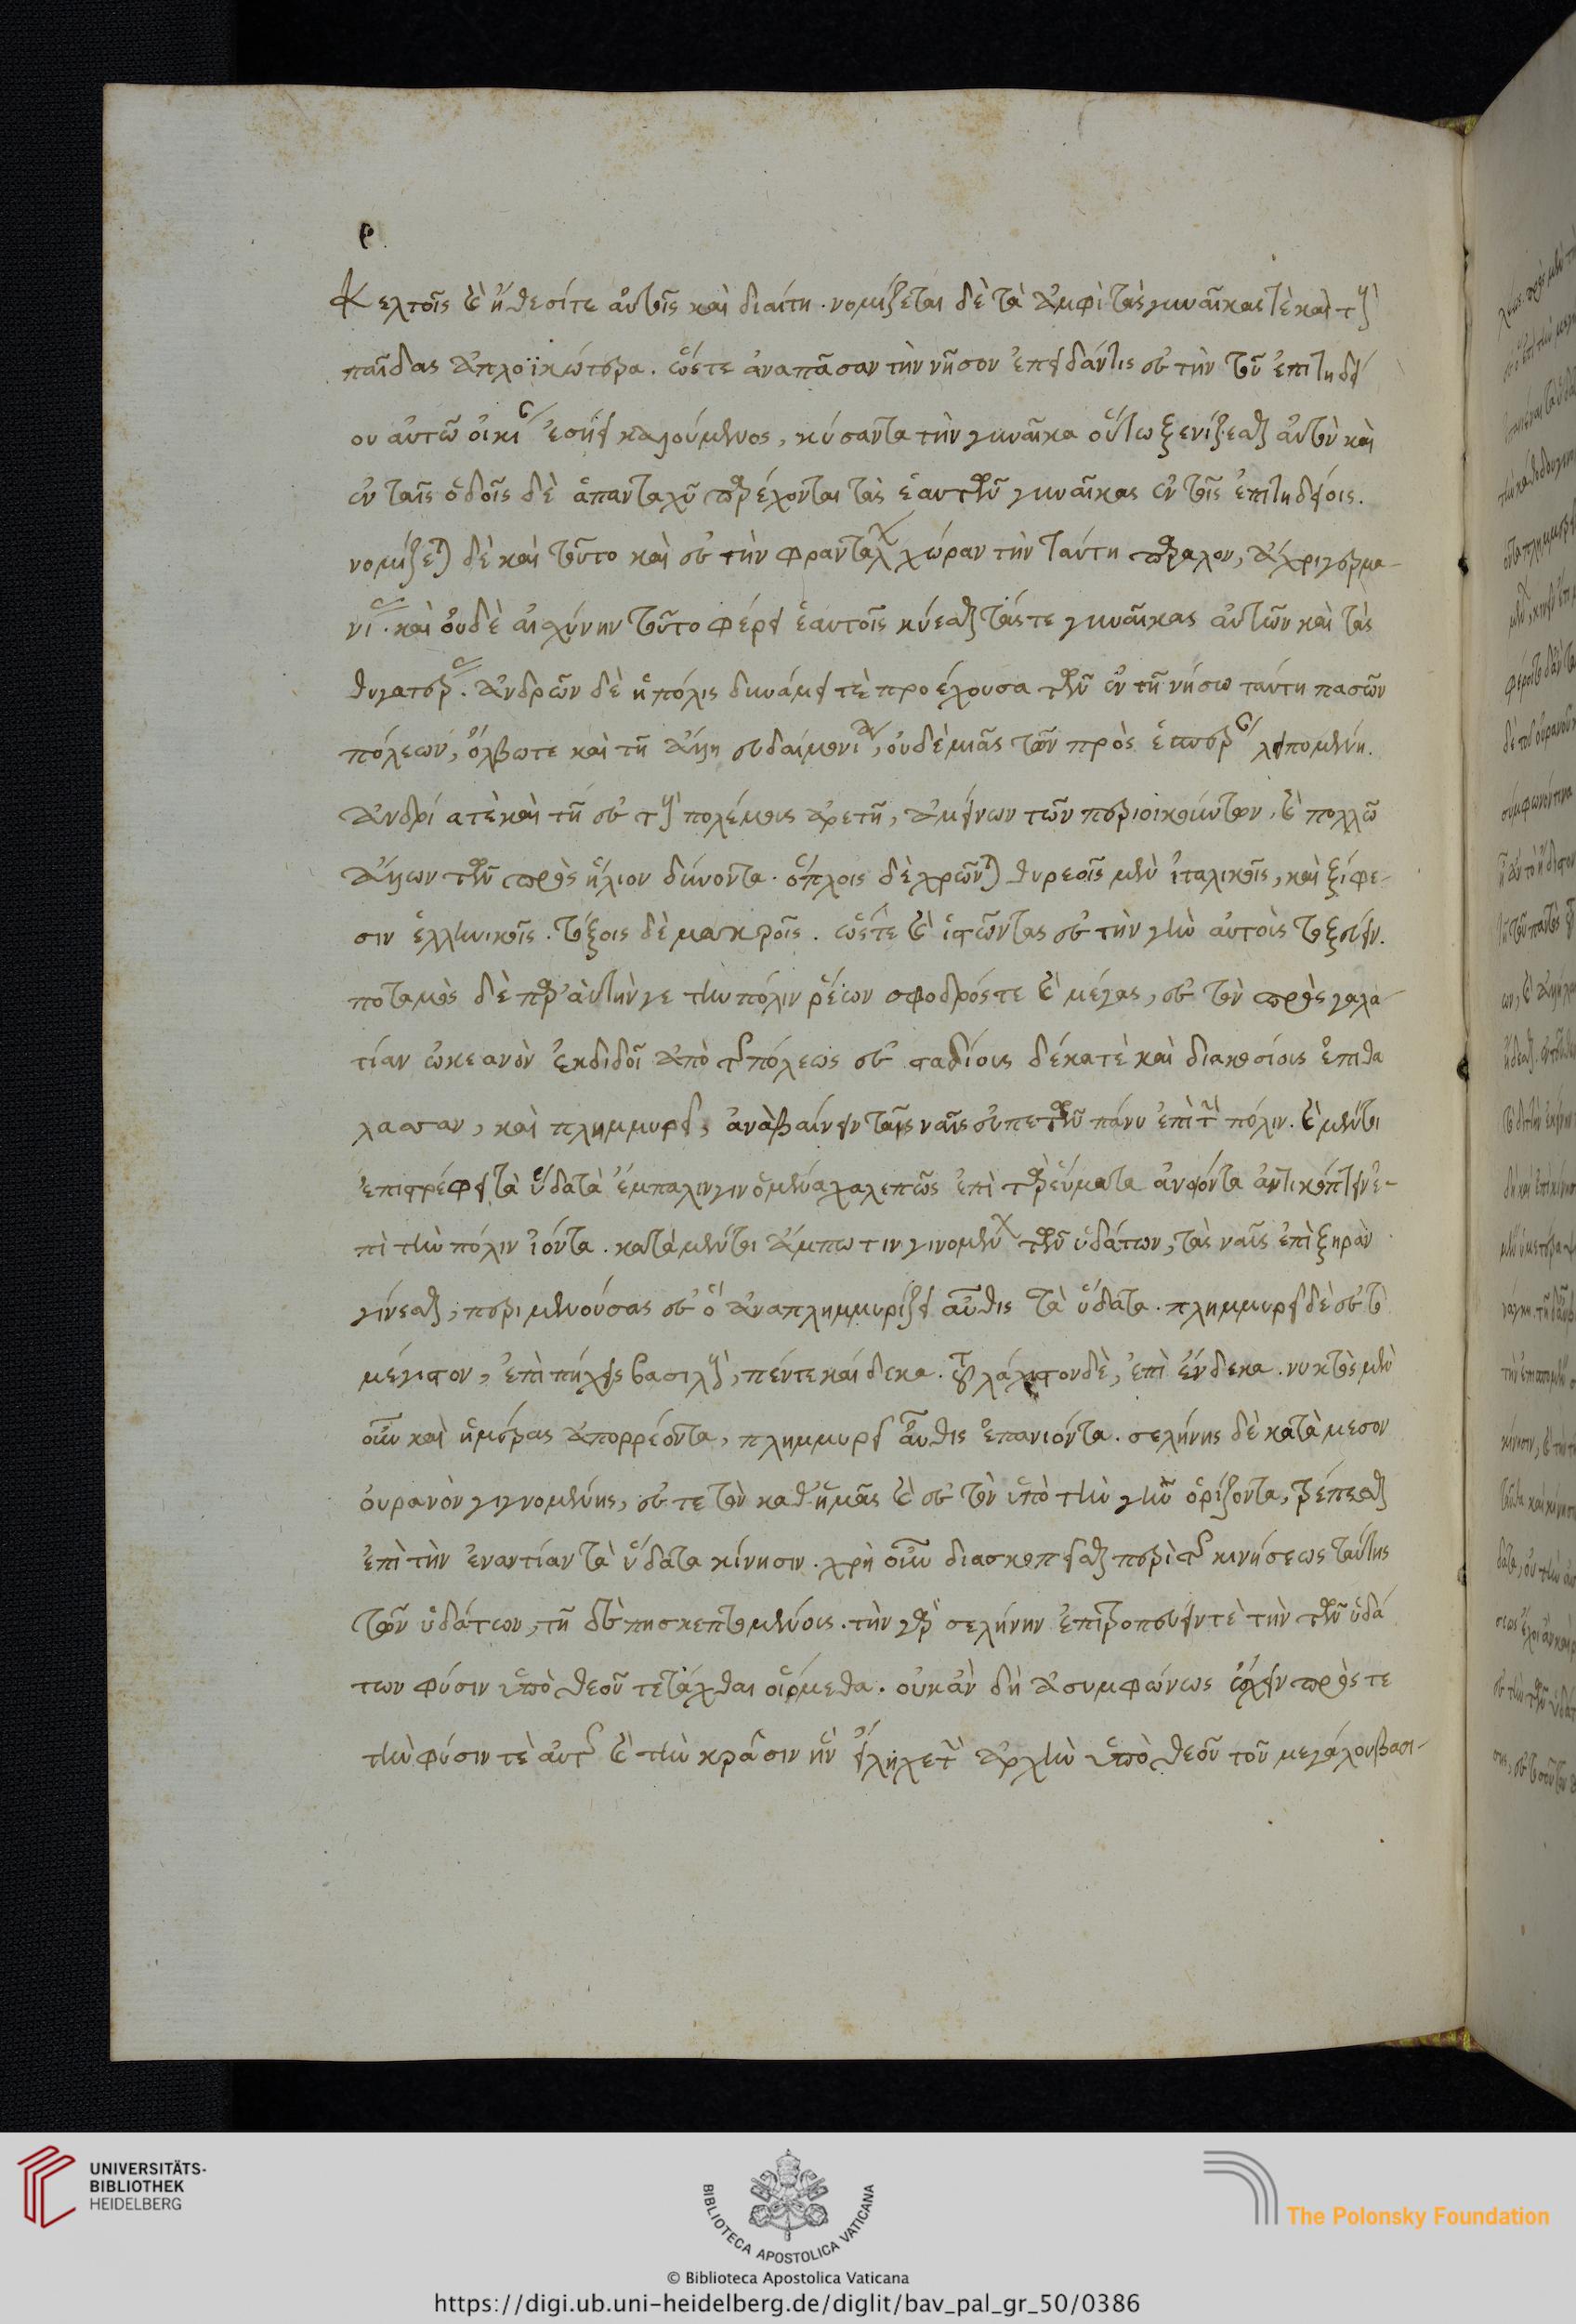 ρ.
Κελτοῖς καὶ ἤθεσί τε αὐτοῖς καὶ διαίτη. νομίζεται δὲ τὰ ἀμφὶ τὰς γυναῖκας τὲ καὶ τοὺς
παῖδας ἁπλοϊκώτερα. ὥστε ἀνα πᾶσαν τὴν νῆσον ἐπειδάν τις ἐς τὴν τοῦ ἐπιτηδεί
ου αὐτῶ οἰκίαν ἐσίῃ καλούμενος, κύσαντα τὴν γυναῖκα οὕτω ξενίζεσθαι αὐτὸν καὶ
ἐν ταῖς ὁδοῖς δὲ ἁπανταχῦ παρέχονται τὰς ἑαυτῶν γυναῖκας ἐν τοῖς ἐπιτηδείοις.
νομίζεται δὲ καὶ τοῦτο καὶ ἐς τὴν φραντάλων χώραν τὴν ταύτη πάραλον, ἄχρι γερμα-
νίας. καὶ οὐδὲ αἰσχύνην τοῦτο φέρει ἑαυτοῖς κύεσθαι τάς τε γυναῖκας αὐτῶν καὶ τὰς
θυγατέρας. Λονδρῶν δὲ ἡ πόλις δυνάμει τὲ προέχουσα τῶν ἐν τῆ νήσω ταύτη πασῶν
πόλεων, ὄλβω τε καὶ τῆ ἄλλη εὐδαιμονία, οὐδεμιᾶς τῶν πρὸς ἑσπέραν λειπομένη.
ἀνδρία τὲ καὶ τῆ ἐς τοὺς πολέμους ἀρετῆ, ἀμείνων τῶν περιοικούντων, καὶ πολλῶ
ἄλλων τῶν πρὸς ἥλιον δύνοντα. ὅπλοις δὲ χρῶνται θυρεοῖς μὲν ἰταλικοῖς, καὶ ξίφε-
σιν ἑλληνικοῖς. τόξοις δὲ μακροῖς. ὥστε καὶ ἱστῶντας ἐς τὴν γὴν αὐτοὺς τοξεύειν.
ποταμὸς δὲ παρ' αὐτὴν γε τὴν πόλιν ῥέων σφοδρός τε καὶ μέγας, ἐς τὸν πρὸς γαλα-
τίαν ὠκεανὸν ἐκδιδοῖ ἀπὸ τῆς πόλεως ἐς σταδίοις δέκα τὲ καὶ διακοσίοις ἐπι θά
λασσαν, καὶ πλημμυρεῖ, ἀναβαίνειν ταῖς ναῦς εὐπετῶς πάνυ ἐπὶ τὴν πόλιν. καὶ μέντοι
ἐπιστρέφει τὰ ὕδατα ἔμπαλιν γινόμενα χαλεπῶς ἐπὶ τὰ ῥεύματα ἀνιόντα ἀντικόπτειν ἐ-
πὶ τὴν πόλιν ἰόντα. κατὰ μέντοι ἄμπωτιν γινομένων τῶν ὑδάτων, τὰς ναῦς ἐπὶ ξηρὰν
γίνεσθαι, περιμενούσας ἐς ὃ ἀναπλημμυρίζει αὖθις τὰ ὕδατα. πλημμυρεῖ δὲ ἐς τὸ
μέγιστον, ἐπὶ πήχεις βασιλείους, πέντε καίδεκα. τοὐλάχιστον δὲ, ἐπὶ ἕνδεκα. νυκτὸς μὲν
οὖν καὶ ἡμέρας ἀπορρέοντα, πλημμυρεῖ αὖθις ἐπανιόντα. σελήνης δὲ κατὰ μεσον
ουρανὸν γιγνομένης, ἔς τε τὸν καθ' ἡμᾶς καὶ ἐς τὸν ὑπὸ τὴν γῆν ὁρίζοντα, τρέπεσθαι
ἐπὶ τὴν ἐναντίαν τὰ ὕδατα κίνησιν. χρὴ οὖν διασκοπεῖσθαι περὶ τῆς κινήσεως ταύτης
τῶν ὑδάτων, τῆ δέ πη σκεπτομένοις. τὴν γὰρ σελήνην ἐπιτροπεύειν τὲ τὴν τῶν ὑδά
των φύσιν ὑπὸ θεοῦ τετάχθαι οἰόμεθα. οὐκ ἂν δὴ ἀσυμφώνως ἔχειν πρός τε
τὴν φύσιν τὲ αὐτῆς καὶ τὴν κρᾶσιν ἣν εἴληχε τὴν ἀρχὴν ὑπὸ θεοῦ τοῦ μεγάλου βασι-
UNIVERSITÄTS-
BIBLIOTHEK
HEIDELBERG
BIBLIOTECA APOSTOLICA VATICANA
The Polonsky Foundation
© Biblioteca Apostolica Vaticana
https://digi.ub.uni-heidelberg.de/diglit/bav_pal_gr_50/0386